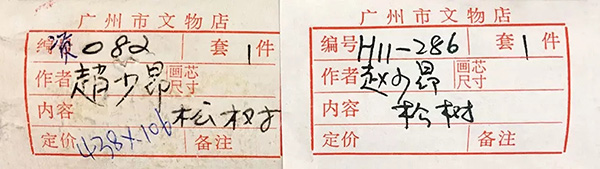 广州市文物店
编号 082 套 1 件
作者 趙少昂 画芯尺寸
内容 松树
定价 438×106 备注
广州市文物店
编号 H11-286 套 1 件
作者 赵少昂 画芯尺寸
内容 松树
定价 备注